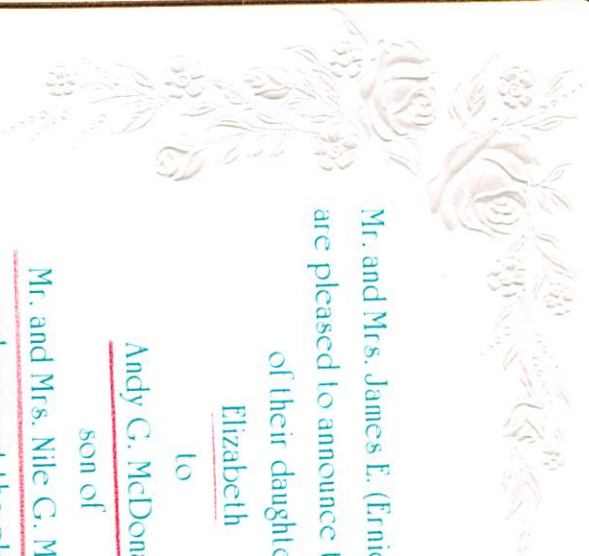 Mr. and Mrs. James E. (Ernie
are pleased to announce t
of their daughte
Elizabeth
to
Andy G. McDona
son of
Mr. and Mrs. Nile G. M